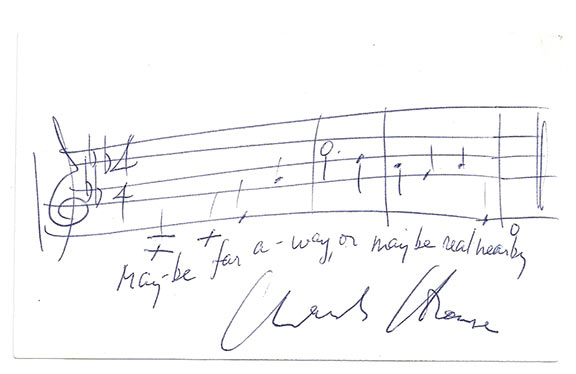 4
4
May-be far a-way, or maybe real nearby
Charles Strouse